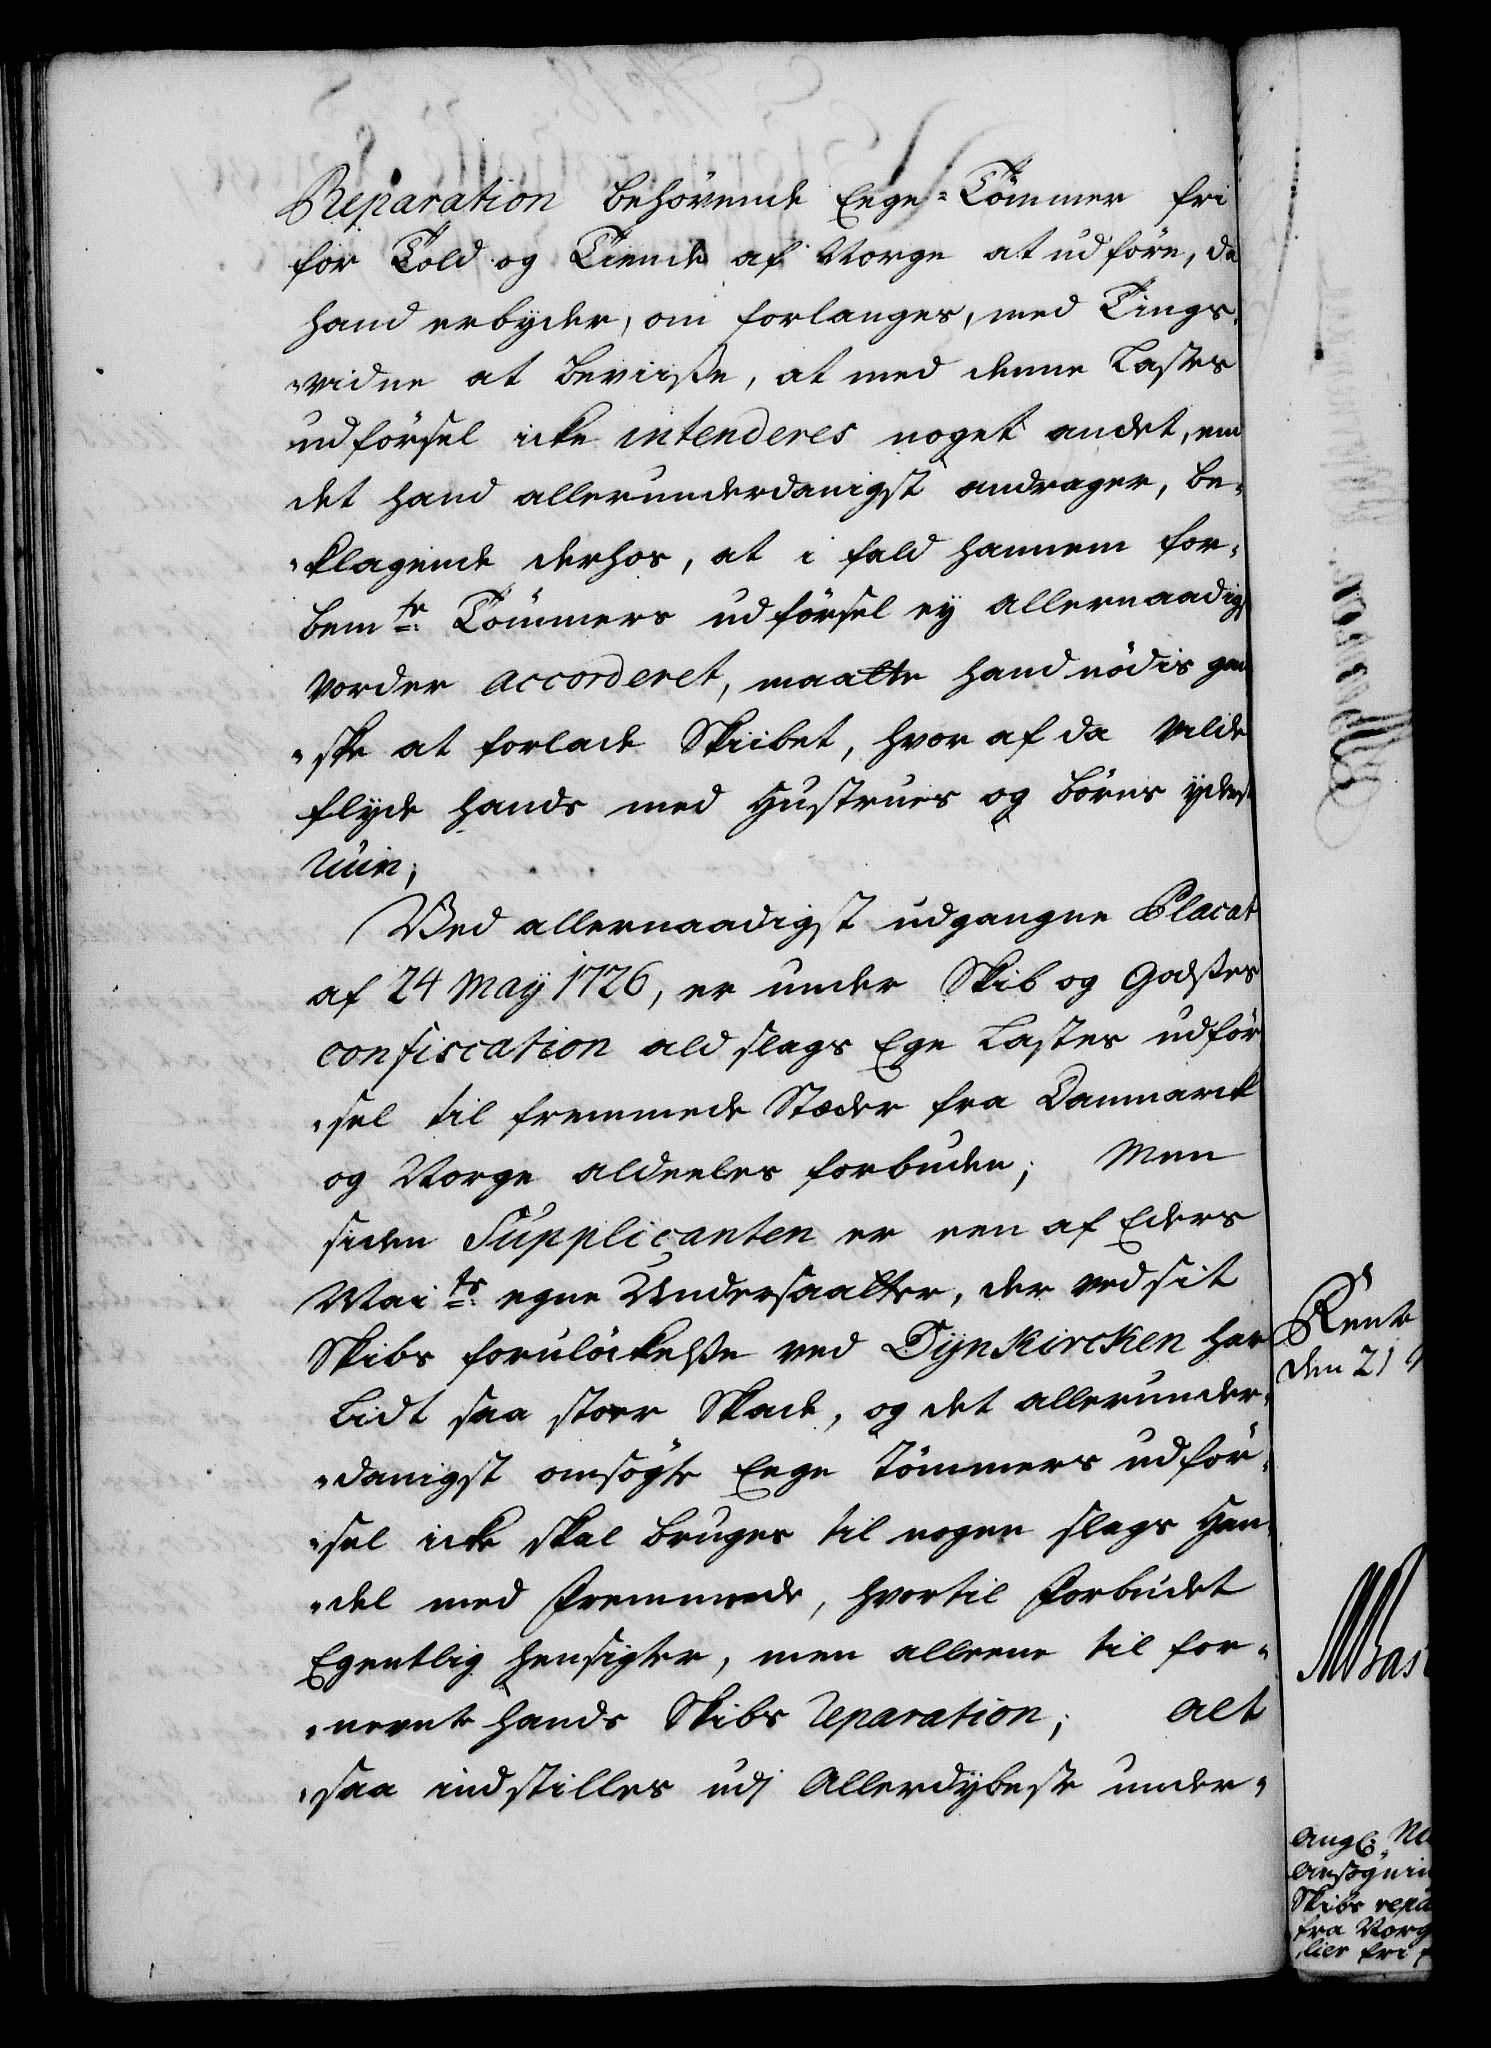 Reparation behövende Eege-Tömmer fri
for Told og Tiende af Norge at udföre, da
hand erbyder, om forlanges, med Tings-
vidne at beviisse, at med denne Lastes
udförsel icke intenderes noget andet, en
det hand allerunderdanigst andrager, be-
klagende derhos, at i fald hannem for-
bem.te Tömmers udförsel ey allernaadigst
vorder accorderet, maatte hand nödis gan-
ske at forlade Skibet, hvor af da vilde
flyde hands med Hustrues og börns yderste
ruin;
Ved allernaadigst udgangne Placat
af 24 May 1726, er under Skib og Godses
confiscation ald slags Ege Lastes udför-
sel til fremmede Stæder fra Danmarck
og Norge aldeeles forbuden; Men
siden Supplicanten er een af Eders
Mai.ts egne Undersaatter, der ved sit
Skibs forulöckelsse ved Dynkircken har
Lidt saa stor Skade, og det allerunder-
danigst omsögte Eege Tömmers udför-
sel icke skal bruges til nogen slags Han-
del med Fremmede, hvortil Forbudet
Egentlig hensigter, men alleene til for-
nevnte hands Skibs reparation; alt
saa indstilles udj Allerdybeste under-
Rente
den 21
Ang:
ansögnin
Skibs repa
fra Norg
fri